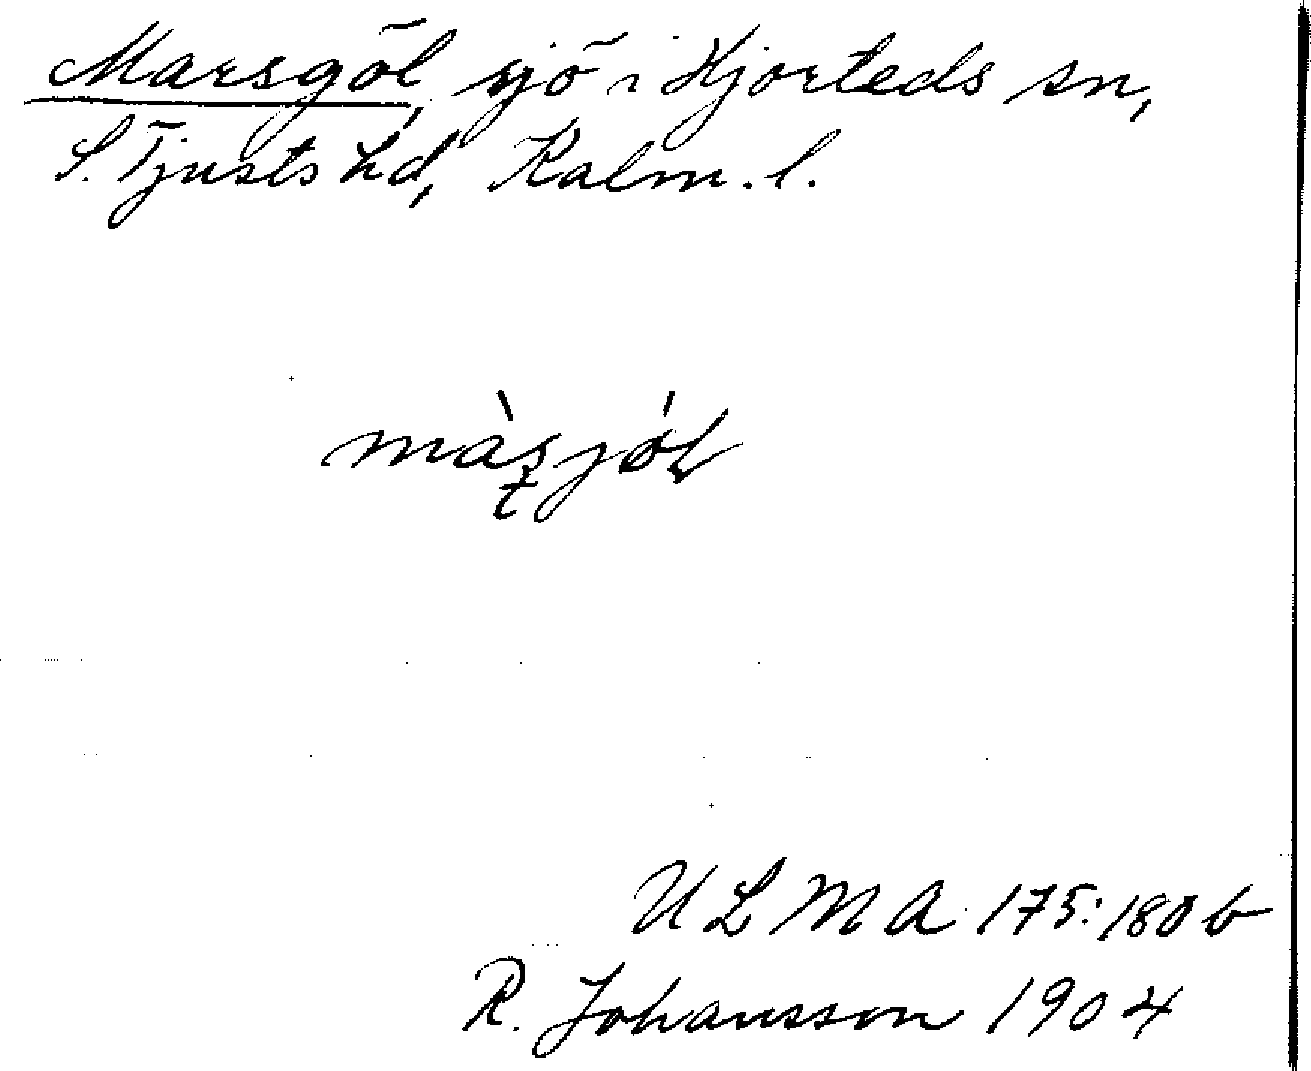 Marsgöl, sjö i Hjorteds sn,
S. Tjusts hd, Kalm. l.
U L M A 175:180 b
R. Johansson 1904